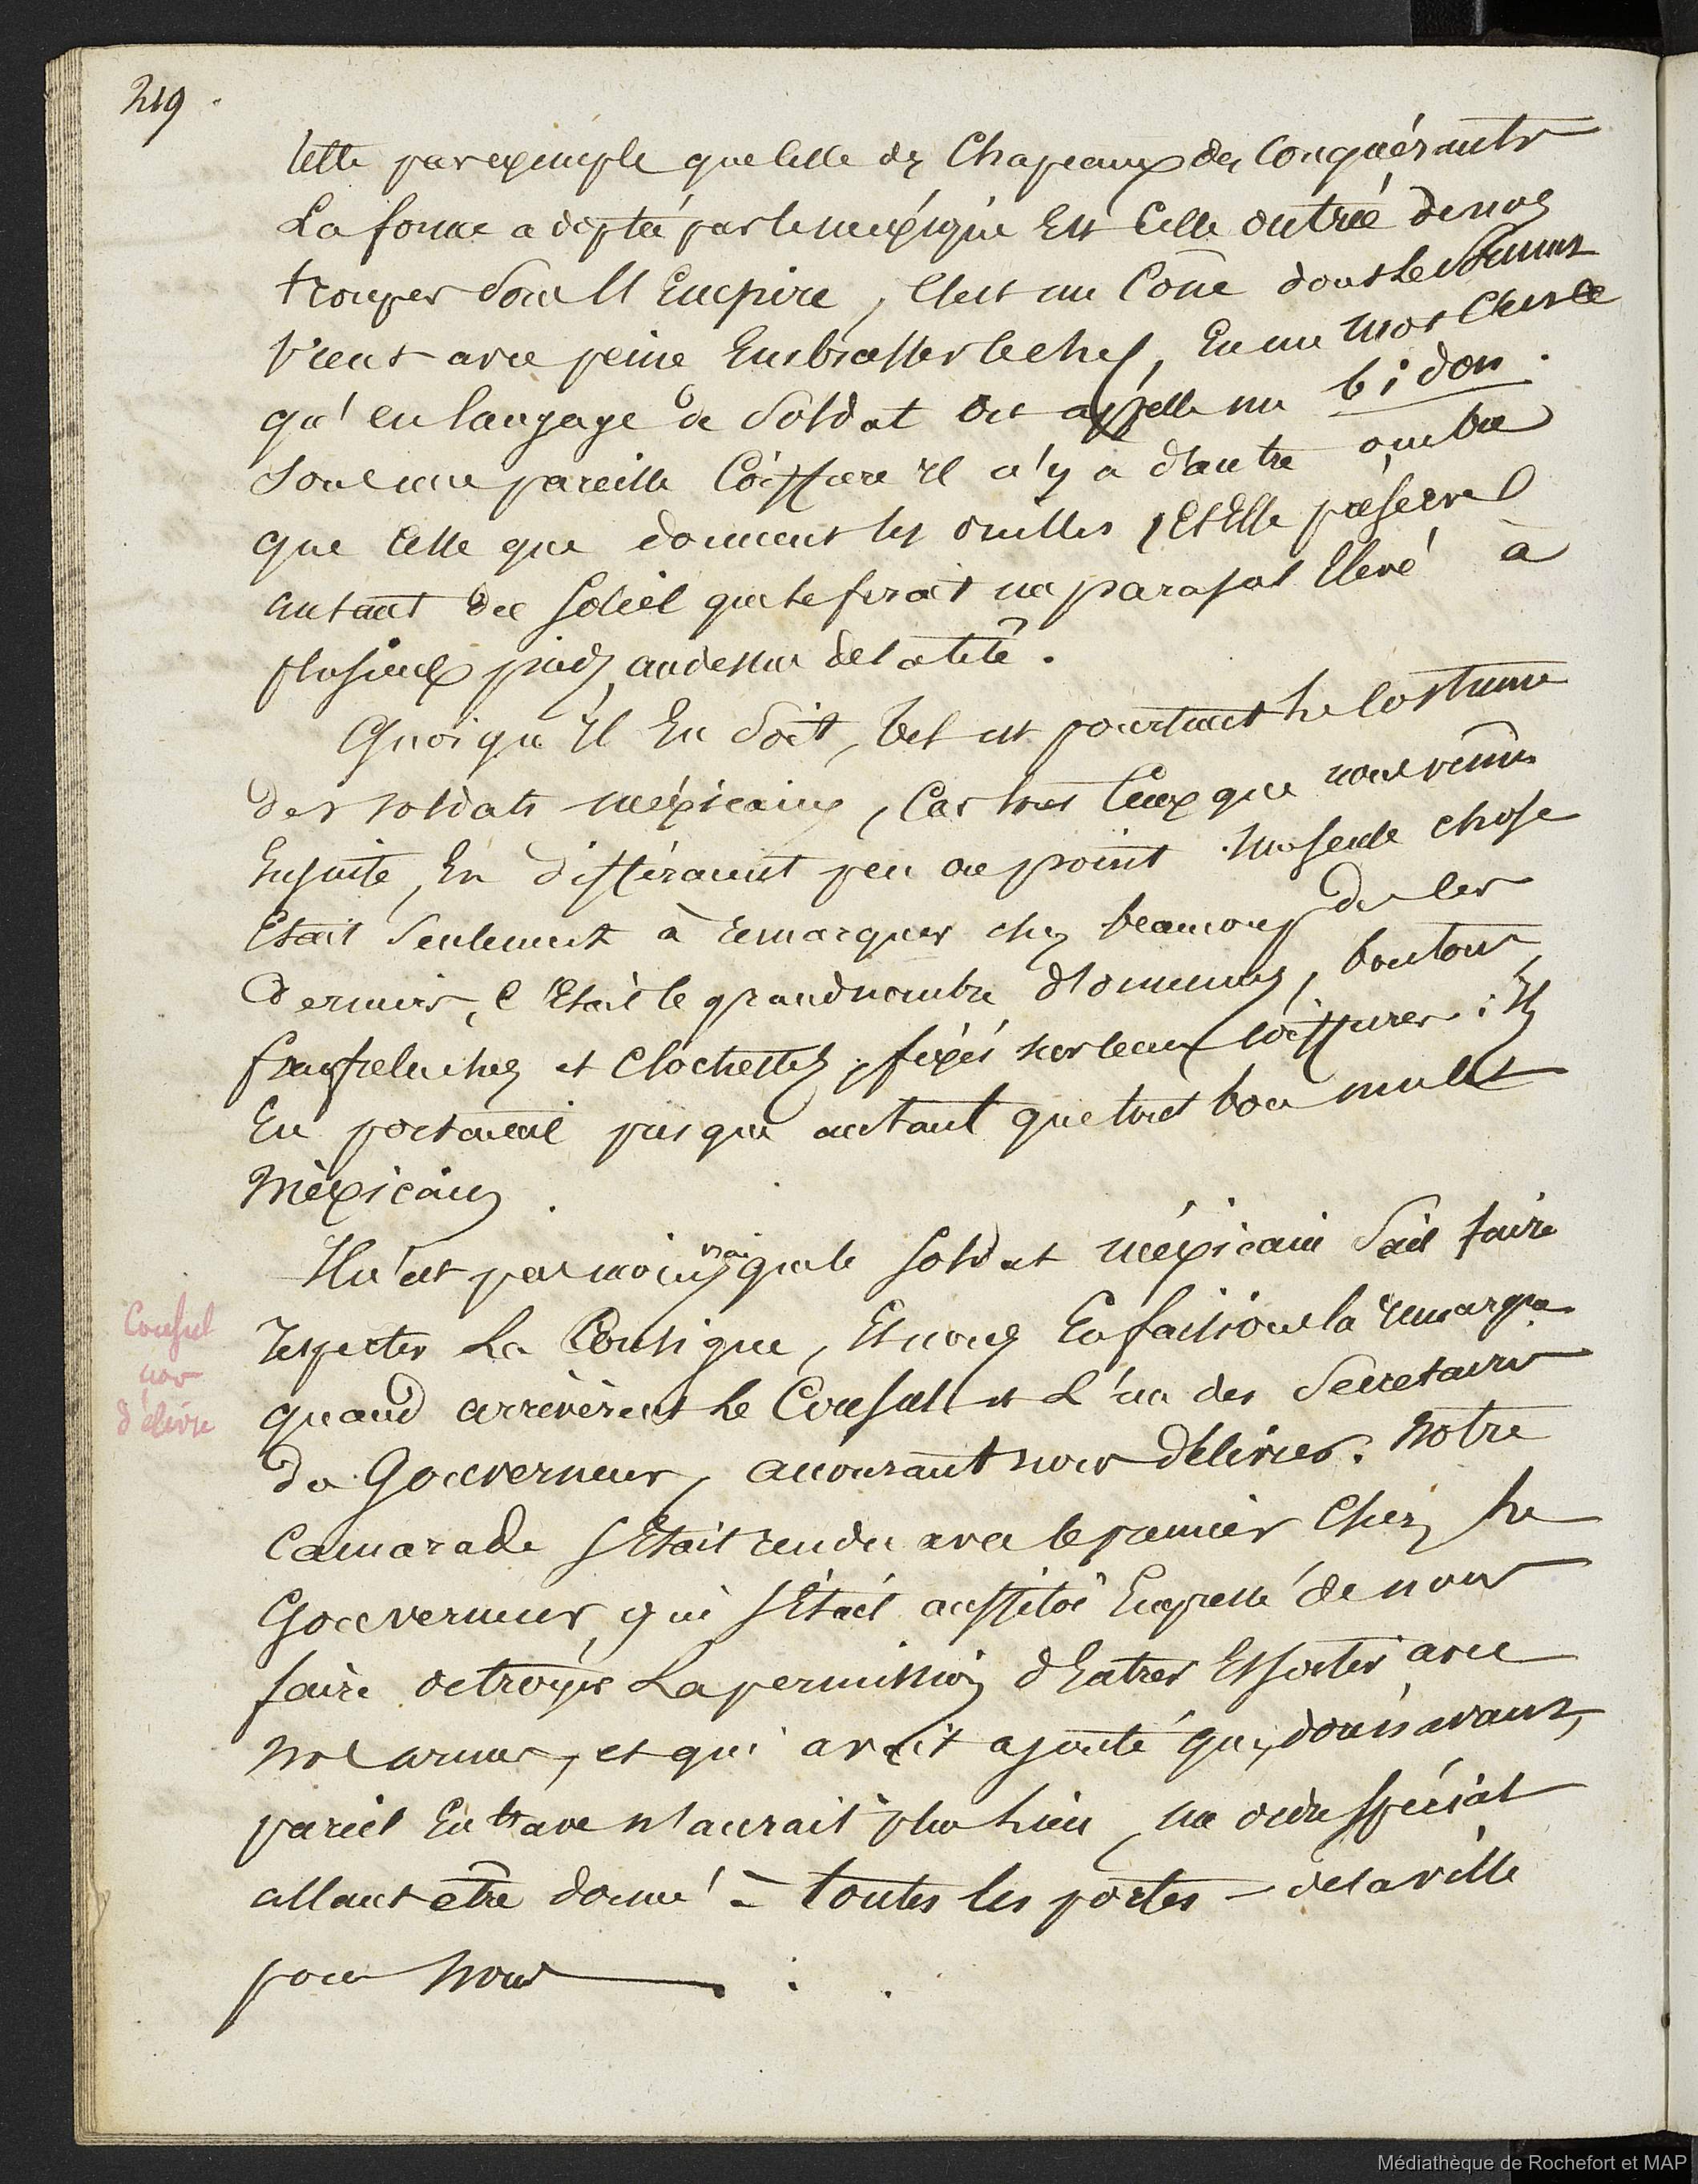 219.
telle par exemple que celle des Chapeaux des Conquérants
La forme adoptée par le mexique Est Celle outrée de nos
troupes Sous l'Empire, C'est un Cône dont le Sommet
Vient avec peine Embrasser le chef, En un mot C'est ce
qu'en langage de Soldat On appelle un bidon.
Sous une pareille Coiffure il n'y a d'autre ombre
que Celle que donnent les oreilles, Et Elle préserve
autant du Soleil que le ferait un parasol Elevé à
plusieurs pieds au dessus de la tête.
Quoiqu'il En Soit, tel est pourtant le Costume
des soldats mexicains, Car tous Ceux que nous vîmes
Ensuite, En différaient peu ou point. Une seule chose
Etait Seulement à remarquer chez beaucoup de ces
derniers, C'Etait le grand nombre d'ornements, boutons,
franfreluches et Clochettes, fixés sur leurs Coiffures: Ils
En portaient presque autant que tout bon mulet
Mexicain.
Il n'est pas moins vrai que le Soldat mexicain Sait faire
respecter La Consigne, Et nous En faisions la remarque
Consul
nous
délivre
quand arrivèrent le Consul et L'un des Secrétaires
du Gouverneur, accourant nous délivrer. Notre
Camarade S'Etait rendu avec le premier Chez le
Gouverneur, qui S'Etait aussitôt Empressé de nous
faire octroyer La permission d'Entrer Et sortir avec
nos armes, et qui avait ajouté que, dorénavant,
pareil Entrave n'aurait plus lieu, un ordre spécial
allant être donné à toutes les portes de la ville
pour Nous.
Médiathèque de Rochefort et MAP